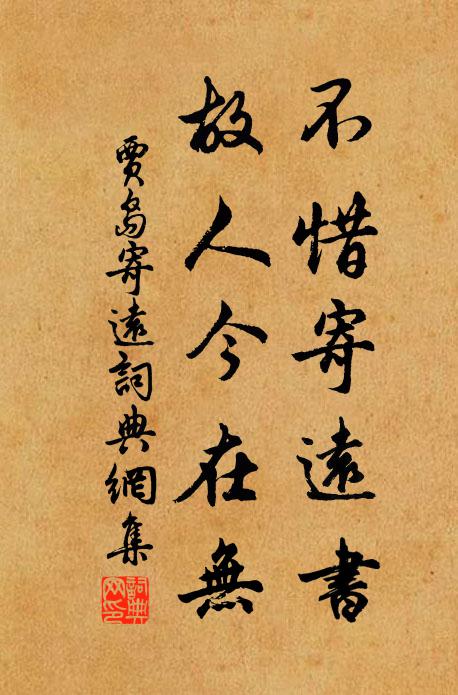 不惜寄遠書
故人今在無
賈島寄遠詞典網集
詞典網印